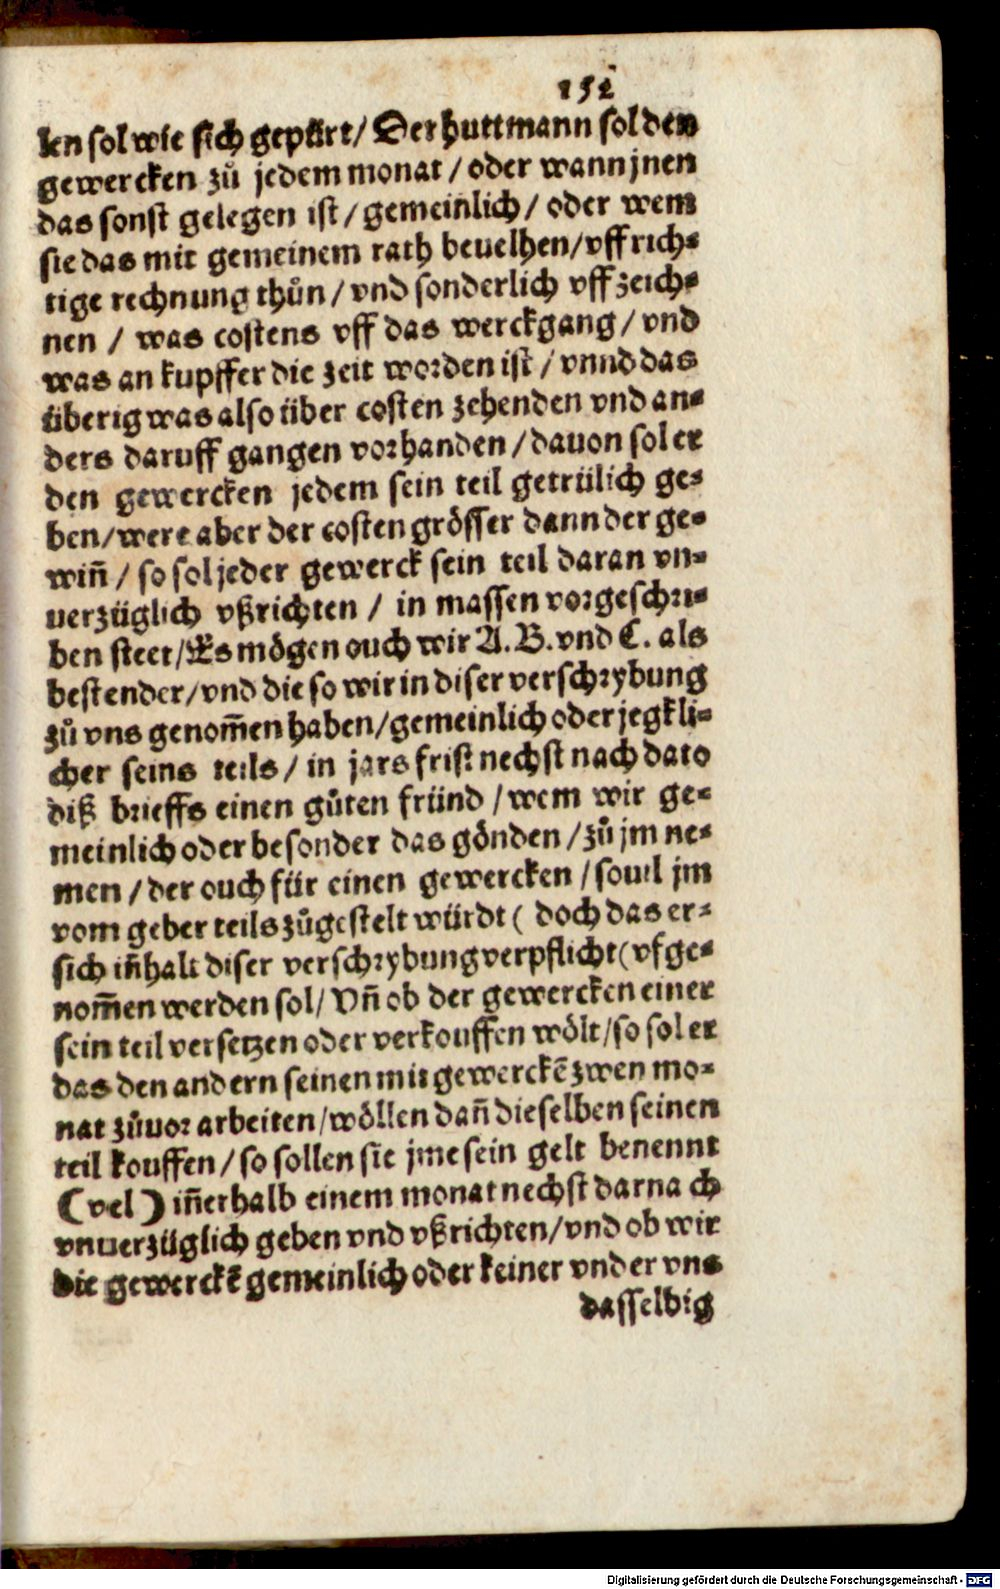 152
len sol wie sich gepürt/ Der huttmann sol den
gewercken zů jedem monat / oder wann jnen
das sonst gelegen ist / gemeinlich / oder wem
sie das mit gemeinem rath beuelhen/vff rich⸗
tige rechnung thůn / vnd sonderlich vff zeich⸗
nen / was costens vff das werckgang / vnd
was an kupffer die zeit worden ist / vnnd das
überig was also über costen zehenden vnd an⸗
ders daruff gangen vorhanden / dauon sol er
den gewercken jedem sein teil getrülich ge⸗
ben/were aber der costen grösser dann der ge⸗
win̄ / so sol jeder gewerck sein teil daran vn⸗
uerzüglich vßrichten / in massen vorgeschri⸗
ben steet/Es mögen ouch wir A. B. vnd C. als
bestender/vnd die so wir in diser verschrybung
zů vns genom̄en haben/gemeinlich oder jegkli⸗
cher seins teils / in jars frist nechst nach dato
diß brieffs einen gůten fründ / wem wir ge⸗
meinlich oder besonder das gönden / zů jm ne⸗
men / der ouch für einen gewercken / souil jm
vom geber teils zůgestelt würdt ( doch das er⸗
sich in̄halt diser verschrybung verpflicht( vfge⸗
nom̄en werden sol/ Vn̄ ob der gewercken einer
sein teil versetzen oder verkouffen wölt/so sol er
das den andern seinen mit gewerckē zwen mo⸗
nat zůuor arbeiten/wöllen dan̄ dieselben seinen
teil kouffen / so sollen sie jme sein gelt benennt
(vel) in̄erhalb einem monat nechst darna ch
vnuerzüglich geben vnd vßrichten/vnd ob wir
die gewerckē gemeinlich oder keiner vnder vns
dasselbig
Digitalisierung gefördert durch die Deutsche Forschungsgemeinschaft - DFG